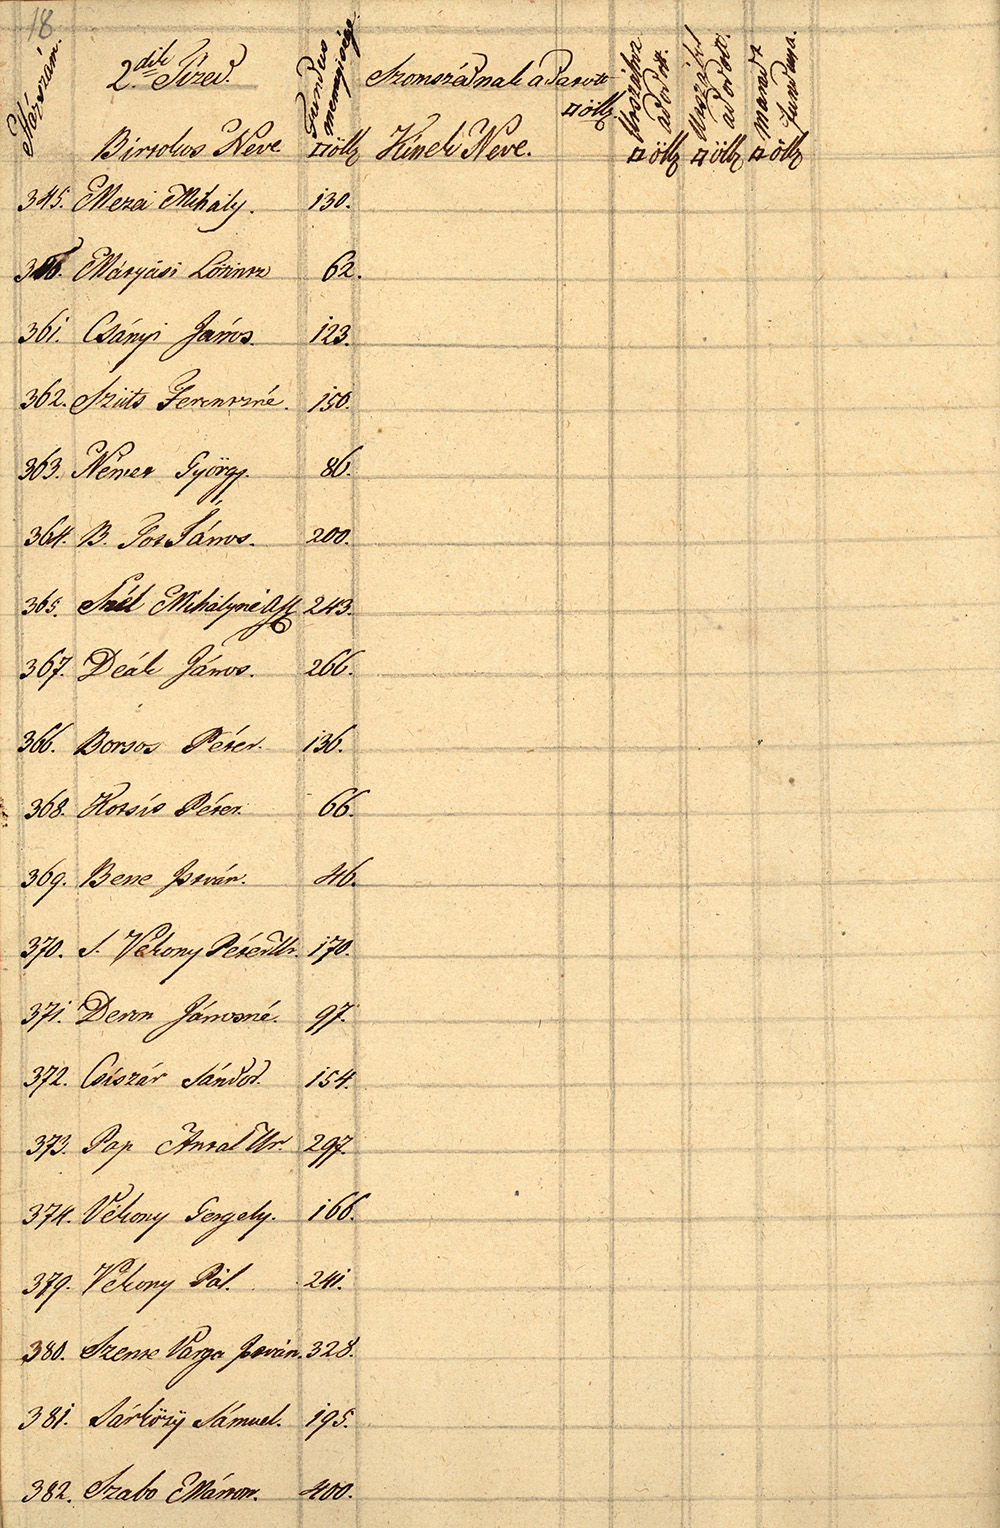 18
Házszám.
2dik Tized.
Birtokos Neve
Fundus mennyisége.
□ölb
Szomszédnak adatott
□ölb
Kinek Neve.
Utszához adodott.
□ölb
Utszából adodott.
□ölb
marad fundusa.
□ölb
345. Mezei Mihály. 130.
Mátyási Lőrincz 62.
361. Csányi János. 123.
362. Szüts Ferenczné. 150.
363. Német György. 86.
364. B. Tot János. 200.
365. Szél Mihályné 243.
367. Deák János. 266.
366. Borsos Péter. 136.
368. Kotsis Péter. 66.
369. Bene István. 46.
370. S. Vékony Péter Ur. 170.
371. János­né. 97.
372. Csiszár Sándor. 154.
373. Pap Antal Ur. 297.
374. Vékony Gergely. 166.
379. Vékony Pál. 241.
380. Szente Varga István. 328.
381. Sárközÿ Sámuel. 195.
382. Szabo Márton. 400.